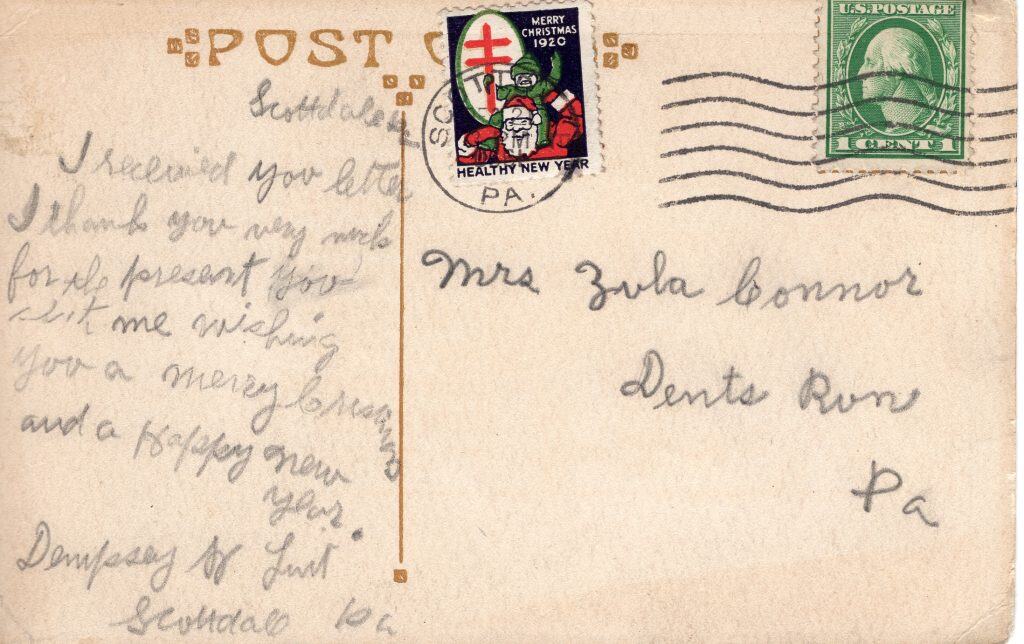 POST C
MERRY
CHRISTMAS
1920
HEALTHY NEW YEAR
PA.
U.S. POSTAGE
1 CENT 1
Scottdale
I received you letter
I thank you very much
for the present you
sent me wishing
you a merry Crismas
and a Happy new
year.
Dempsey
Scottdale Pa
Mrs Zula Connor
Dents Run
Pa